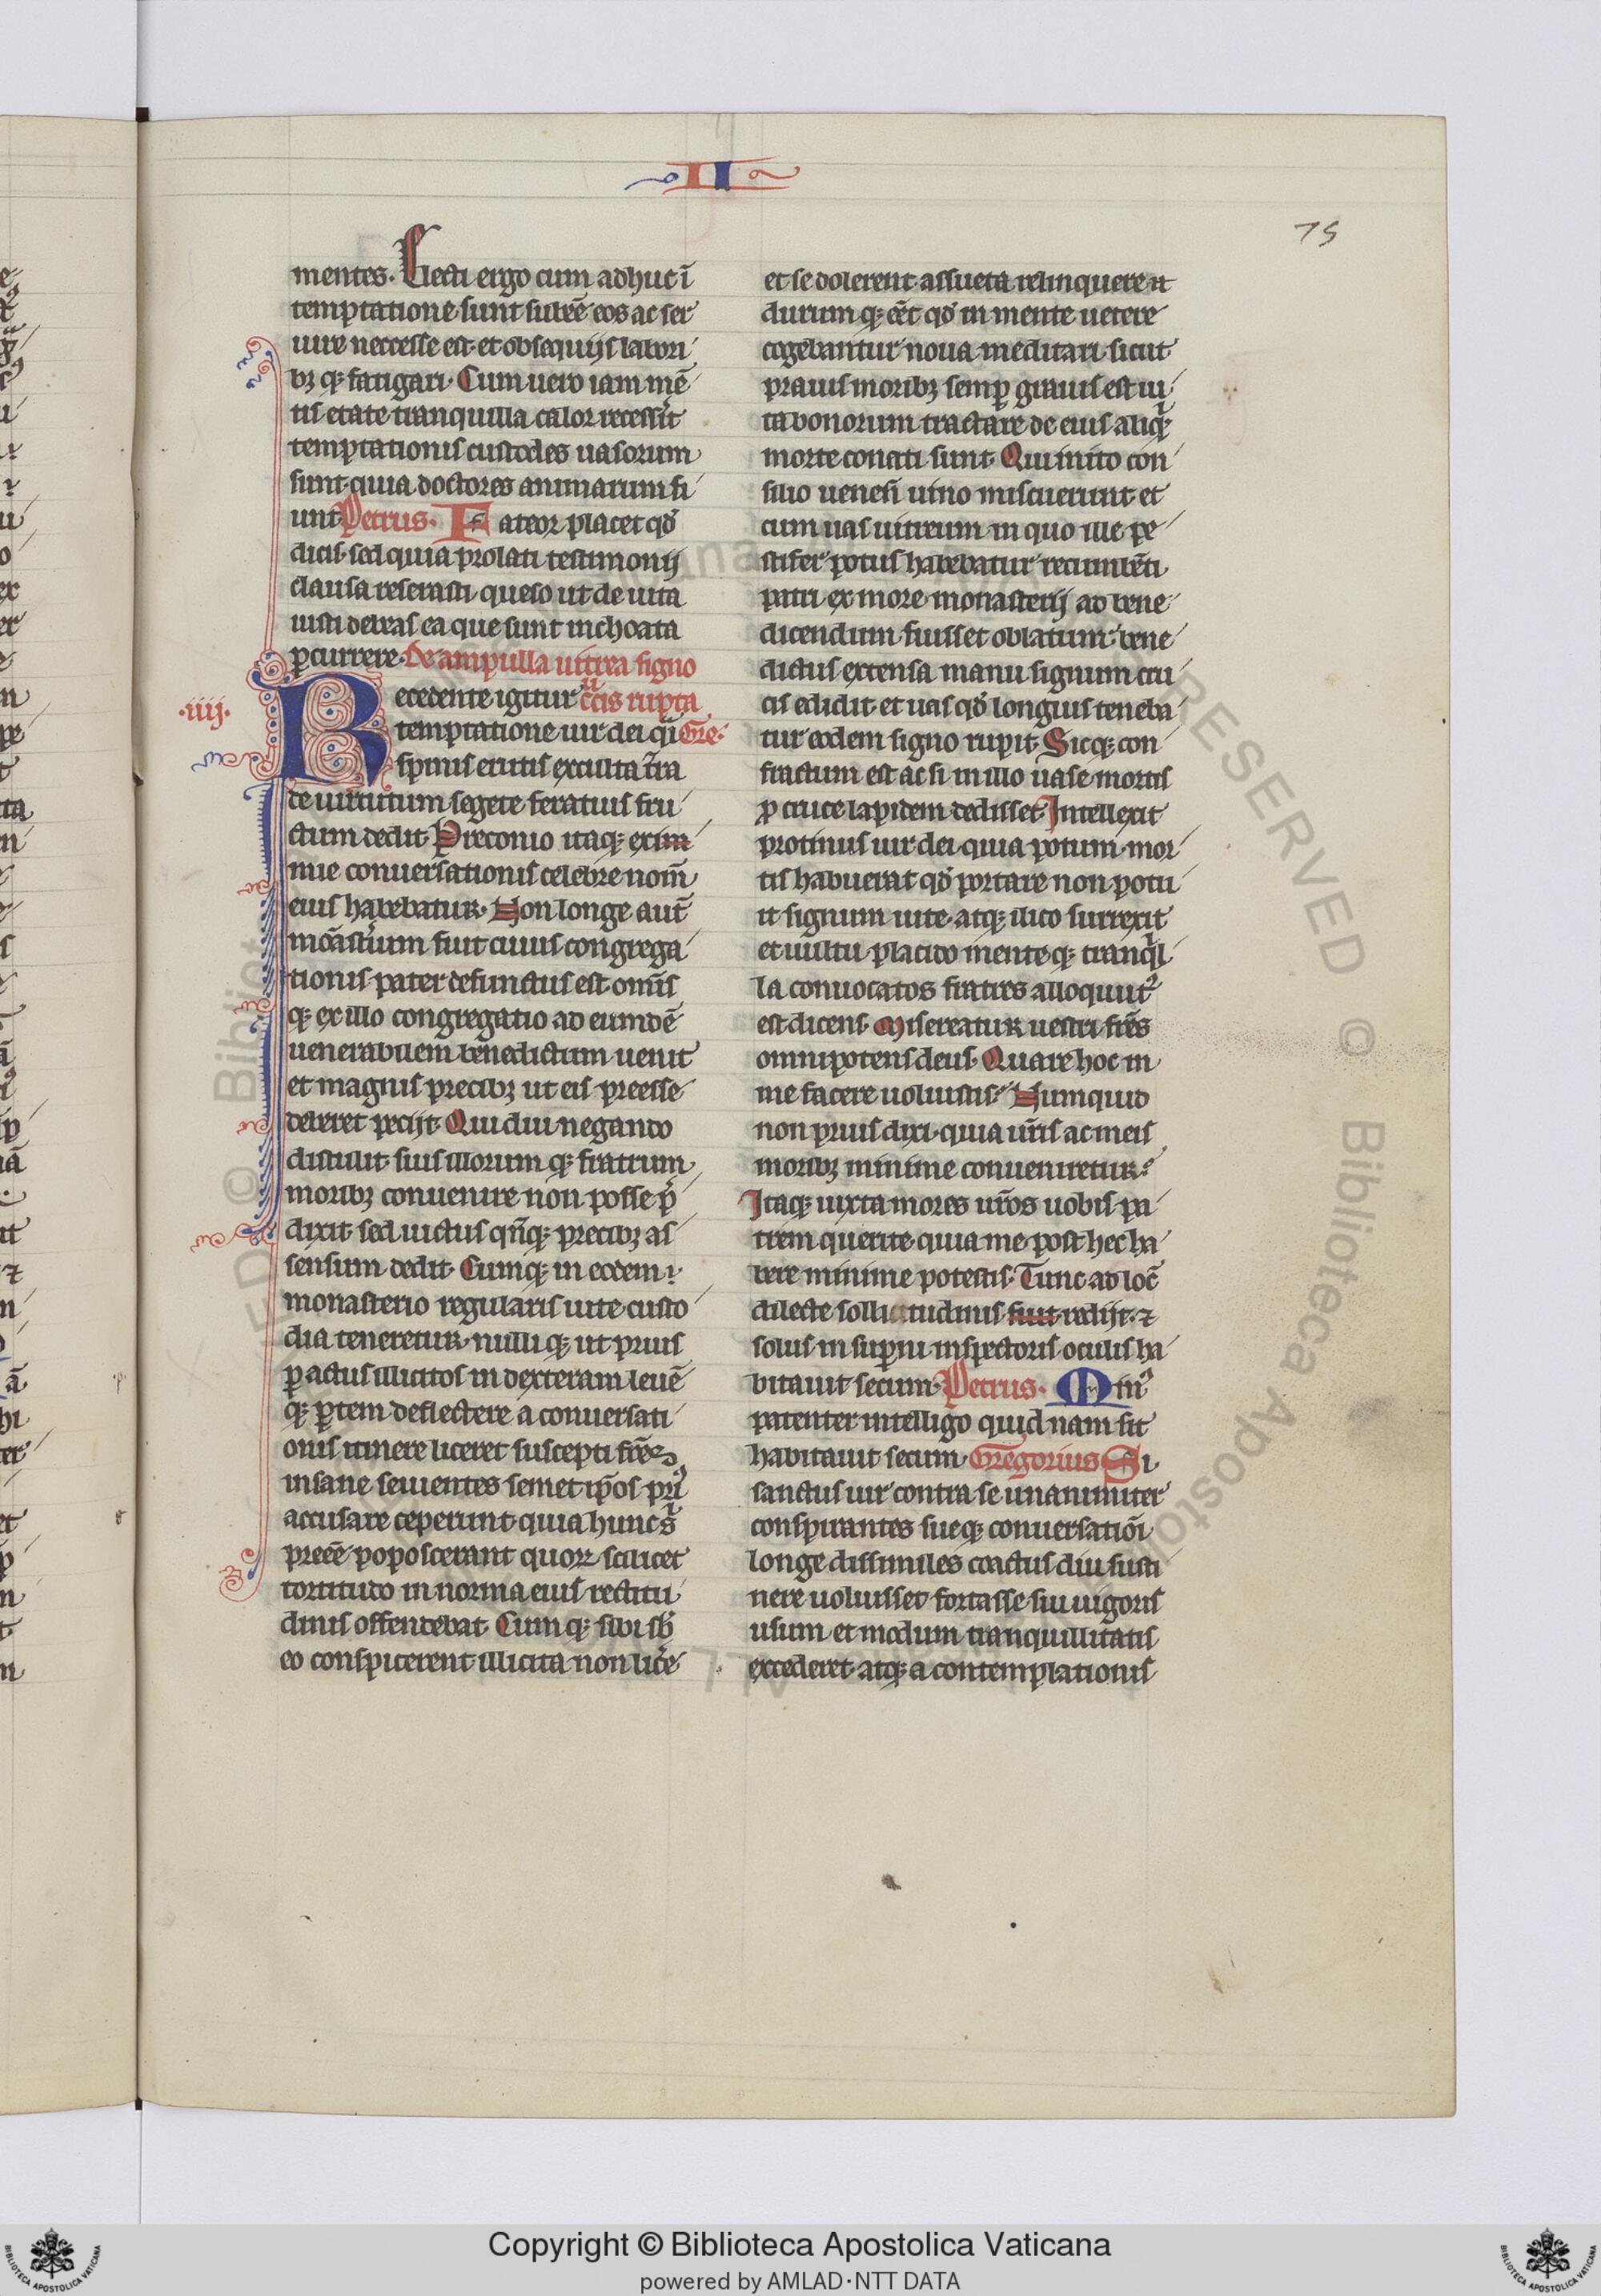 II
75
mentes. Electi ergo cum adhuc ī
temptatione sunt subēē eos ac ser
uire neccesse est et obsequijs labori
bꝫ qꝫ fatigari. Cum uero iam mē
tis etate tranquilla calor recess̓it
temptationis custodes uasorum
sunt quia doctores animarum fi
unt Petrus. Fateor placet qđ
dicis. sed quia prolati testimonij
clausa reserasti queso ut de uita
iusti debeas ea que sunt inchoata
ꝑcurrere. De ampulla uitrea signo
.iiij.
Recedente igitur c̄cis rupta
temptatione uir dei q̄i Gre.
spinis erutis exculta t̄ra
de uirtutum segete feratius fru
ctum dedit. Preconio itaqꝫ exim
mie conuersationis celebre nom̄
eius habebatur. Non longe aut̄
monast̓ium fuit cuius congrega
tionis pater defunctus est om̄is
qꝫ ex illo congregatio ad eumdē
uenerabilem benedictum uenit
et magnis precibꝫ ut eis preesse
deberet pecijt. Qui diu negando
distulit. suis illorum qꝫ fratrum
moribꝫ conuenire non posse p̄
dixit. sed uictus qn̄qꝫ precibꝫ as
sensum dedit. Cumqꝫ in eodem
monasterio regularis uite custo
dia teneretur. nulli qꝫ ut prius
ꝑ actus illicitos in dexteram leuē
qꝫ ꝑtem deflectere a conuersati
onis itinere liceret suscepti fr̄es
insane seuientes semet ip̄os pri̓
accusare ceperunt quia hunc s̄
preēē poposcerant quoꝝ scilicet
tortitudo in norma eius rectitu
dinis offendebat. Cum qꝫ sibi sb̓
eo conspicerent illicita non lic̓e
et se dolerent assueta relinquere et
durum qꝫ eēt qđ in mente uetere
cogebantur noua meditari. sicut
prauis moribꝫ semꝑ grauis est ui
ta bonorum tractare de eius aliqͣ
morte conati sunt. Qui inito con
silio uenen̄ uino miscuerunt et
cum uas uitreum in quo ille pe
stifer potus habebatur recumbēti
patri ex more monasterij ad bene
dicendum fuisset oblatum. bene
dictus extensa manu signum cru
cis edidit et uas qđ longius teneba
tur eodem signo rupit. Sicqꝫ con
fractum est ac si in illo uase mortis
ꝓ cruce lapidem dedisset. Intellexit
protinus uir dei quia potum mor
tis habuerat qđ portare non potu
it signum uite. atqꝫ ilico surrexit
et uultu placido mente qꝫ tranq̓l
la conuocatos fratres alloquut᷒
est dicens. Misereatur uestri fr̄es
omnipotens deus. Quare hoc in
me facere uoluistis? Numquid
non prius dixi. quia ur̄is ac meis
moribꝫ minime conueniretur?
Itaqꝫ iuxta mores ur̄os uobis pa
trem querite quia me post hec ha
bere minime potestis. Tunc ad loc̄
dilecte sollicitudinis fuit redijt. ⁊
solus in superni inspectoris oculis ha
bitauit secum. Petrus. Min᷒
patenter intelligo quid nam sit
habitauit secum. Gregorius Si
sanctus uir contra se unanimiter
conspirantes sueqꝫ conuersatiōi
longe dissimiles coactus diu susti
nere uoluisset fortasse sui uigoris
usum et modum tranquillitatis
excederet. atqꝫ a contemplationis
Copyright © Biblioteca Apostolica Vaticana
powered by AMLAD·NTT DATA